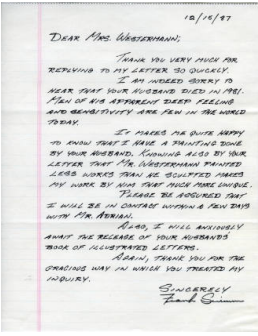 12/15/87
DEAR MRS. WESTERMANN,
THANK YOU VERY MUCH FOR
REPLYING TO MY LETTER SO QUICKLY.
I AM INDEED SORRY TO
HEAR THAT YOUR HUSBAND DIED IN 1981.
MEN OF HIS APPARENT DEEP FEELING
AND SENSITIVITY ARE FEW IN THE WORLD
TODAY.
IT MAKES ME QUITE HAPPY
TO KNOW THAT I HAVE A PAINTING DONE
BY YOUR HUSBAND. KNOWING ALSO BY YOUR
LETTER THAT MR. WESTERMANN PAINTED
LESS WORKS THAN HE SCULPTED MAKES
MY WORK BY HIM THAT MUCH MORE UNIQUE.
PLEASE BE ASSURED THAT
I WILL BE IN CONTACT WITHIN A FEW DAYS
WITH MR. ADRIAN.
ALSO, I WILL ANXIOUSLY
AWAIT THE RELEASE OF YOUR HUSBANDS
BOOK OF ILLUSTRATED LETTERS.
AGAIN, THANK YOU FOR THE
GRACIOUS WAY IN WHICH YOU TREATED MY
INQUIRY.
SINCERELY
Frank